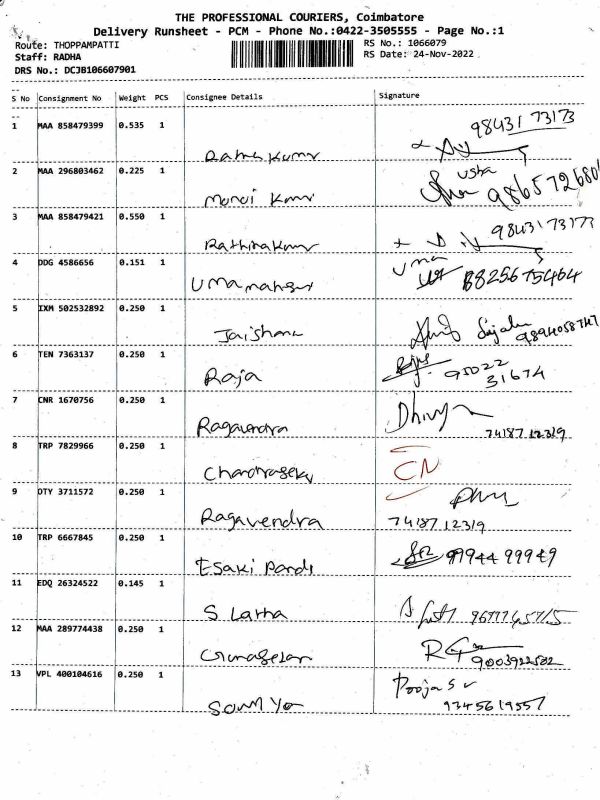 THE PROFESSIONAL COURIERS, Coimbatore
Delivery Runsheet - PCM - Phone No.:0422-3505555 - Page No.:1
Route: THOPPAMPATTI
RS No.: 1066079
Staff: RADHA
RS Date: 24-Nov-2022
DRS No.: DCJB106607901
S No Consignment No Weight PCS Consignee Details Signature
1 MAA 858479399 0.535 1 98431 73173
2 MAA 296803462 0.225 1 usha
3 MAA 858479421 0.550 1 98431 73173
4 DDG 4586656 0.151 1 uma
8825675464
5 IXM 502532892 0.250 1
Jaishana 9894058747
6 TEN 7363137 0.250 1
Raja 95022
31674
7 CNR 1670756 0.250 1 Dhivya
Ragavendra 74187 12319
8 TRP 7829966 0.250 1
CN
9 DTY 3711572 0.250 1
Ragavendra 74187 12319
10 TRP 6667845 0.250 1
Esaki Pandi 99944 99949
11 EDQ 26324522 0.145 1
S Latha
12 MAA 289774438 0.250 1
9003922502
13 VPL 400104616 0.250 1 Pooja S V
Sowmya 9345619557